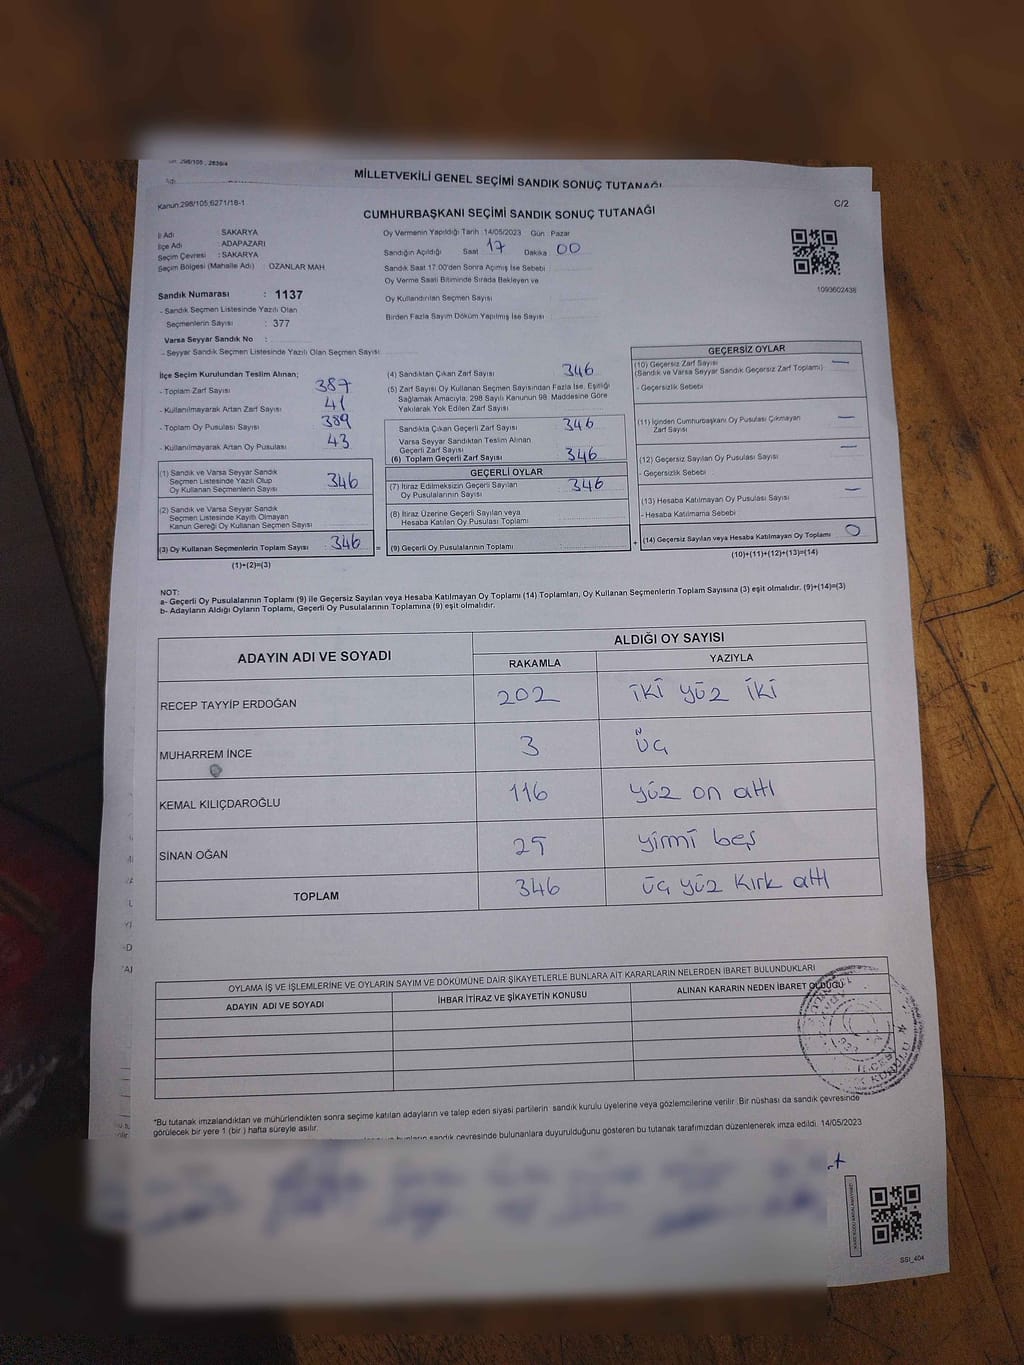 MİLLETVEKİLİ GENEL SEÇİMİ SANDIK SONUÇ TUTANAĞI
Kanun:298/105;6271/18-1
C/2
CUMHURBAŞKANI SEÇİMİ SANDIK SONUÇ TUTANAĞI
İl Adı : SAKARYA
İlçe Adı : ADAPAZARI
Seçim Çevresi : SAKARYA
Seçim Bölgesi (Mahalle Adı) : OZANLAR MAH
Sandık Numarası : 1137
- Sandık Seçmen Listesinde Yazılı Olan
Seçmenlerin Sayısı : 377
Varsa Seyyar Sandık No :
- Seyyar Sandık Seçmen Listesinde Yazılı Olan Seçmen Sayısı:
Oy Vermenin Yapıldığı Tarih :14/05/2023 Gün : Pazar
Sandığın Açıldığı Saat 17 Dakika 00
Sandık Saat 17:00'den Sonra Açımış İse Sebebi :
Oy Verme Saati Bitiminde Sırada Bekleyen ve
Oy Kullandırılan Seçmen Sayısı :
Birden Fazla Sayım Döküm Yapılmış İse Sayısı :
1093602438
İlçe Seçim Kurulundan Teslim Alınan;
- Toplam Zarf Sayısı : 387
- Kullanılmayarak Artan Zarf Sayısı : 41
- Toplam Oy Pusulası Sayısı : 389
- Kullanılmayarak Artan Oy Pusulası : 43
(1) Sandık ve Varsa Seyyar Sandık
Seçmen Listesinde Yazılı Olup
Oy Kullanan Seçmenlerin Sayısı : 346
(2) Sandık ve Varsa Seyyar Sandık
Seçmen Listesinde Kayıtlı Olmayan
Kanun Gereği Oy Kullanan Seçmen Sayısı :
(3) Oy Kullanan Seçmenlerin Toplam Sayısı : 346 =
(1)+(2)=(3)
(4) Sandıktan Çıkan Zarf Sayısı : 346
(5) Zarf Sayısı Oy Kullanan Seçmen Sayısından Fazla İse, Eşitliği
Sağlamak Amacıyla; 298 Sayılı Kanunun 98. Maddesine Göre
Yakılarak Yok Edilen Zarf Sayısı :
Sandıkta Çıkan Geçerli Zarf Sayısı : 346
Varsa Seyyar Sandıktan Teslim Alınan
Geçerli Zarf Sayısı :
(6) Toplam Geçerli Zarf Sayısı : 346
GEÇERLİ OYLAR
(7) İtiraz Edilmeksizin Geçerli Sayılan
Oy Pusulalarının Sayısı : 346
(8) İtiraz Üzerine Geçerli Sayılan veya
Hesaba Katılan Oy Pusulası Toplamı :
(9) Geçerli Oy Pusulalarının Toplamı : +
GEÇERSİZ OYLAR
(10) Geçersiz Zarf Sayısı : —
(Sandık ve Varsa Seyyar Sandık Geçersiz Zarf Toplamı)
- Geçersizlik Sebebi :
(11) İçinden Cumhurbaşkanı Oy Pusulası Çıkmayan
Zarf Sayısı : —
(12) Geçersiz Sayılan Oy Pusulası Sayısı : —
- Geçersizlik Sebebi :
(13) Hesaba Katılmayan Oy Pusulası Sayısı : —
- Hesaba Katılmama Sebebi :
(14) Geçersiz Sayılan veya Hesaba Katılmayan Oy Toplamı : 0
(10)+(11)+(12)+(13)=(14)
NOT:
a- Geçerli Oy Pusulalarının Toplamı (9) ile Geçersiz Sayılan veya Hesaba Katılmayan Oy Toplamı (14) Toplamları, Oy Kullanan Seçmenlerin Toplam Sayısına (3) eşit olmalıdır. (9)+(14)=(3)
b- Adayların Aldığı Oyların Toplamı, Geçerli Oy Pusulalarının Toplamına (9) eşit olmalıdır.
ADAYIN ADI VE SOYADI
ALDIĞI OY SAYISI
RAKAMLA YAZIYLA
RECEP TAYYİP ERDOĞAN 202 iki yüz iki
MUHARREM İNCE 3 üç
KEMAL KILIÇDAROĞLU 116 yüz on altı
SİNAN OĞAN 25 yirmi beş
TOPLAM 346 üç yüz kırk altı
OYLAMA İŞ VE İŞLEMLERİNE VE OYLARIN SAYIM VE DÖKÜMÜNE DAİR ŞİKAYETLERLE BUNLARA AİT KARARLARIN NELERDEN İBARET BULUNDUKLARI
ADAYIN ADI VE SOYADI İHBAR İTİRAZ VE ŞİKAYETİN KONUSU ALINAN KARARIN NEDEN İBARET OLDUĞU
*Bu tutanak imzalandıktan ve mühürlendikten sonra seçime katılan adayların ve talep eden siyasi partilerin sandık kurulu üyelerine veya gözlemcilerine verilir. Bir nüshası da sandık çevresinde
görülecek bir yere 1 (bir ) hafta süreyle asılır.
bunların sandık çevresinde bulunanlara duyurulduğunu gösteren bu tutanak tarafımızdan düzenlenerek imza edildi. 14/05/2023
SSI_404